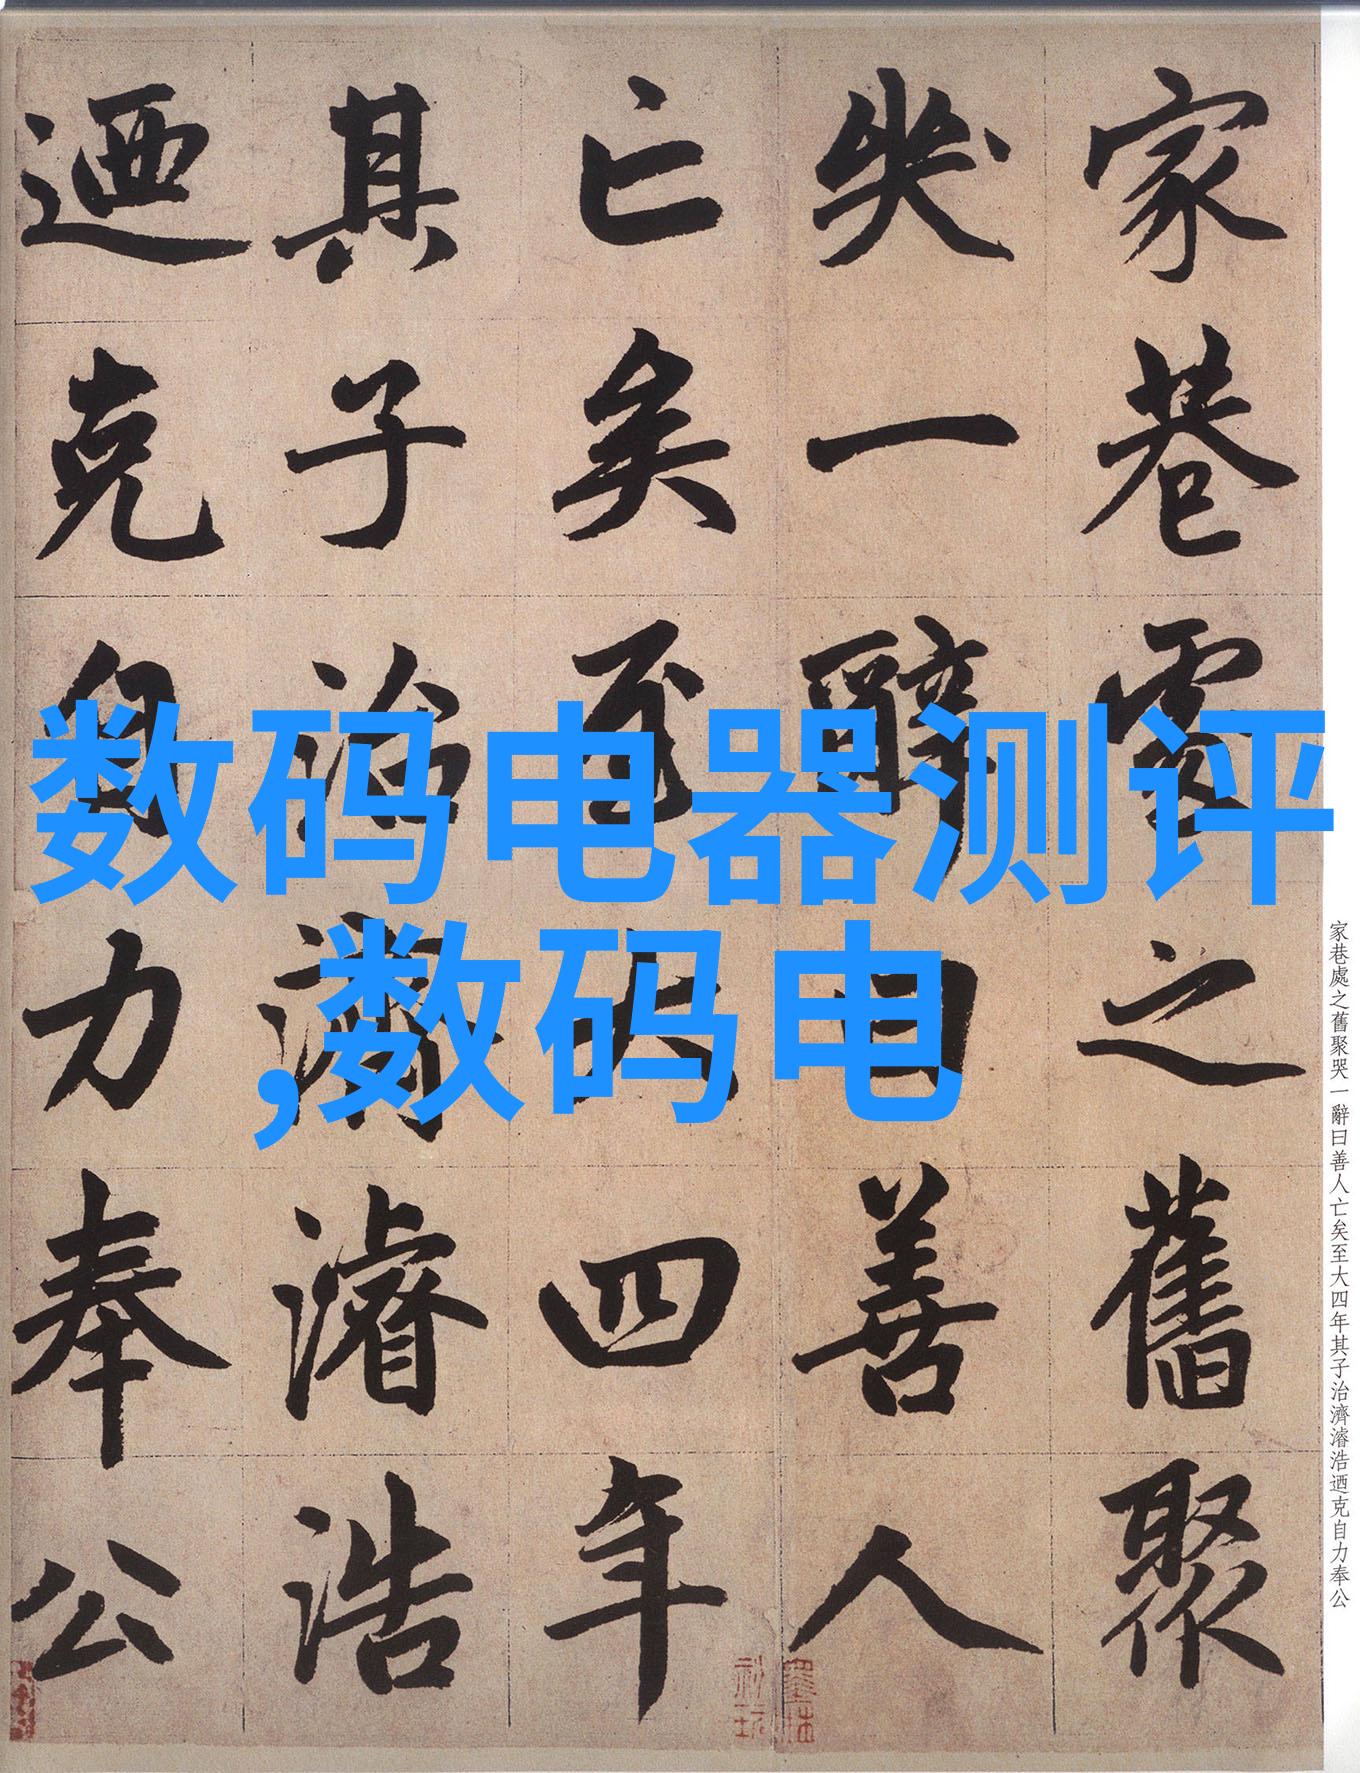 家巷處之舊聚
哭一辭曰善人
亡矣至大四年
其子治濟濬浩
迺克自力奉公
数码电器测评
,数码电
家巷處之舊聚哭一辭曰善人亡矣至大四年其子治濟濬浩迺克自力奉公